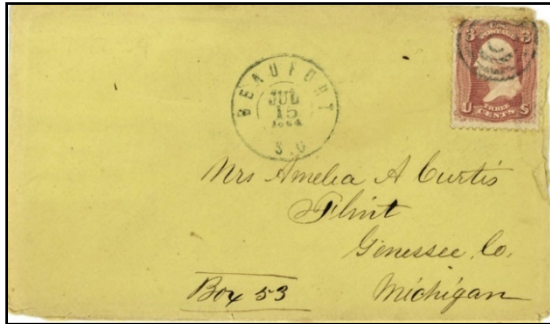 3 3
BEAUFORT
JUL
15
1864
S.C
U THREE CENTS S
Mrs Amelia A Curtis
Flint
Genessee Co.
Box 53
Michigan